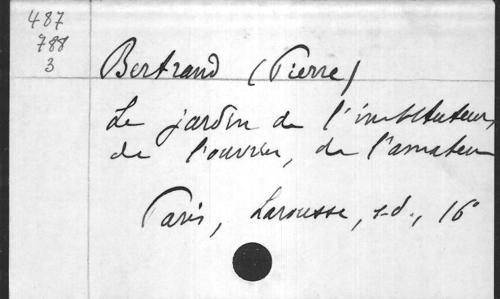 487
788
3
Bertrand (Pierre)
Le jardin de l'instituteur,
de l'ouvrier, de l'amateur
Paris, Larousse, s.d., 16°